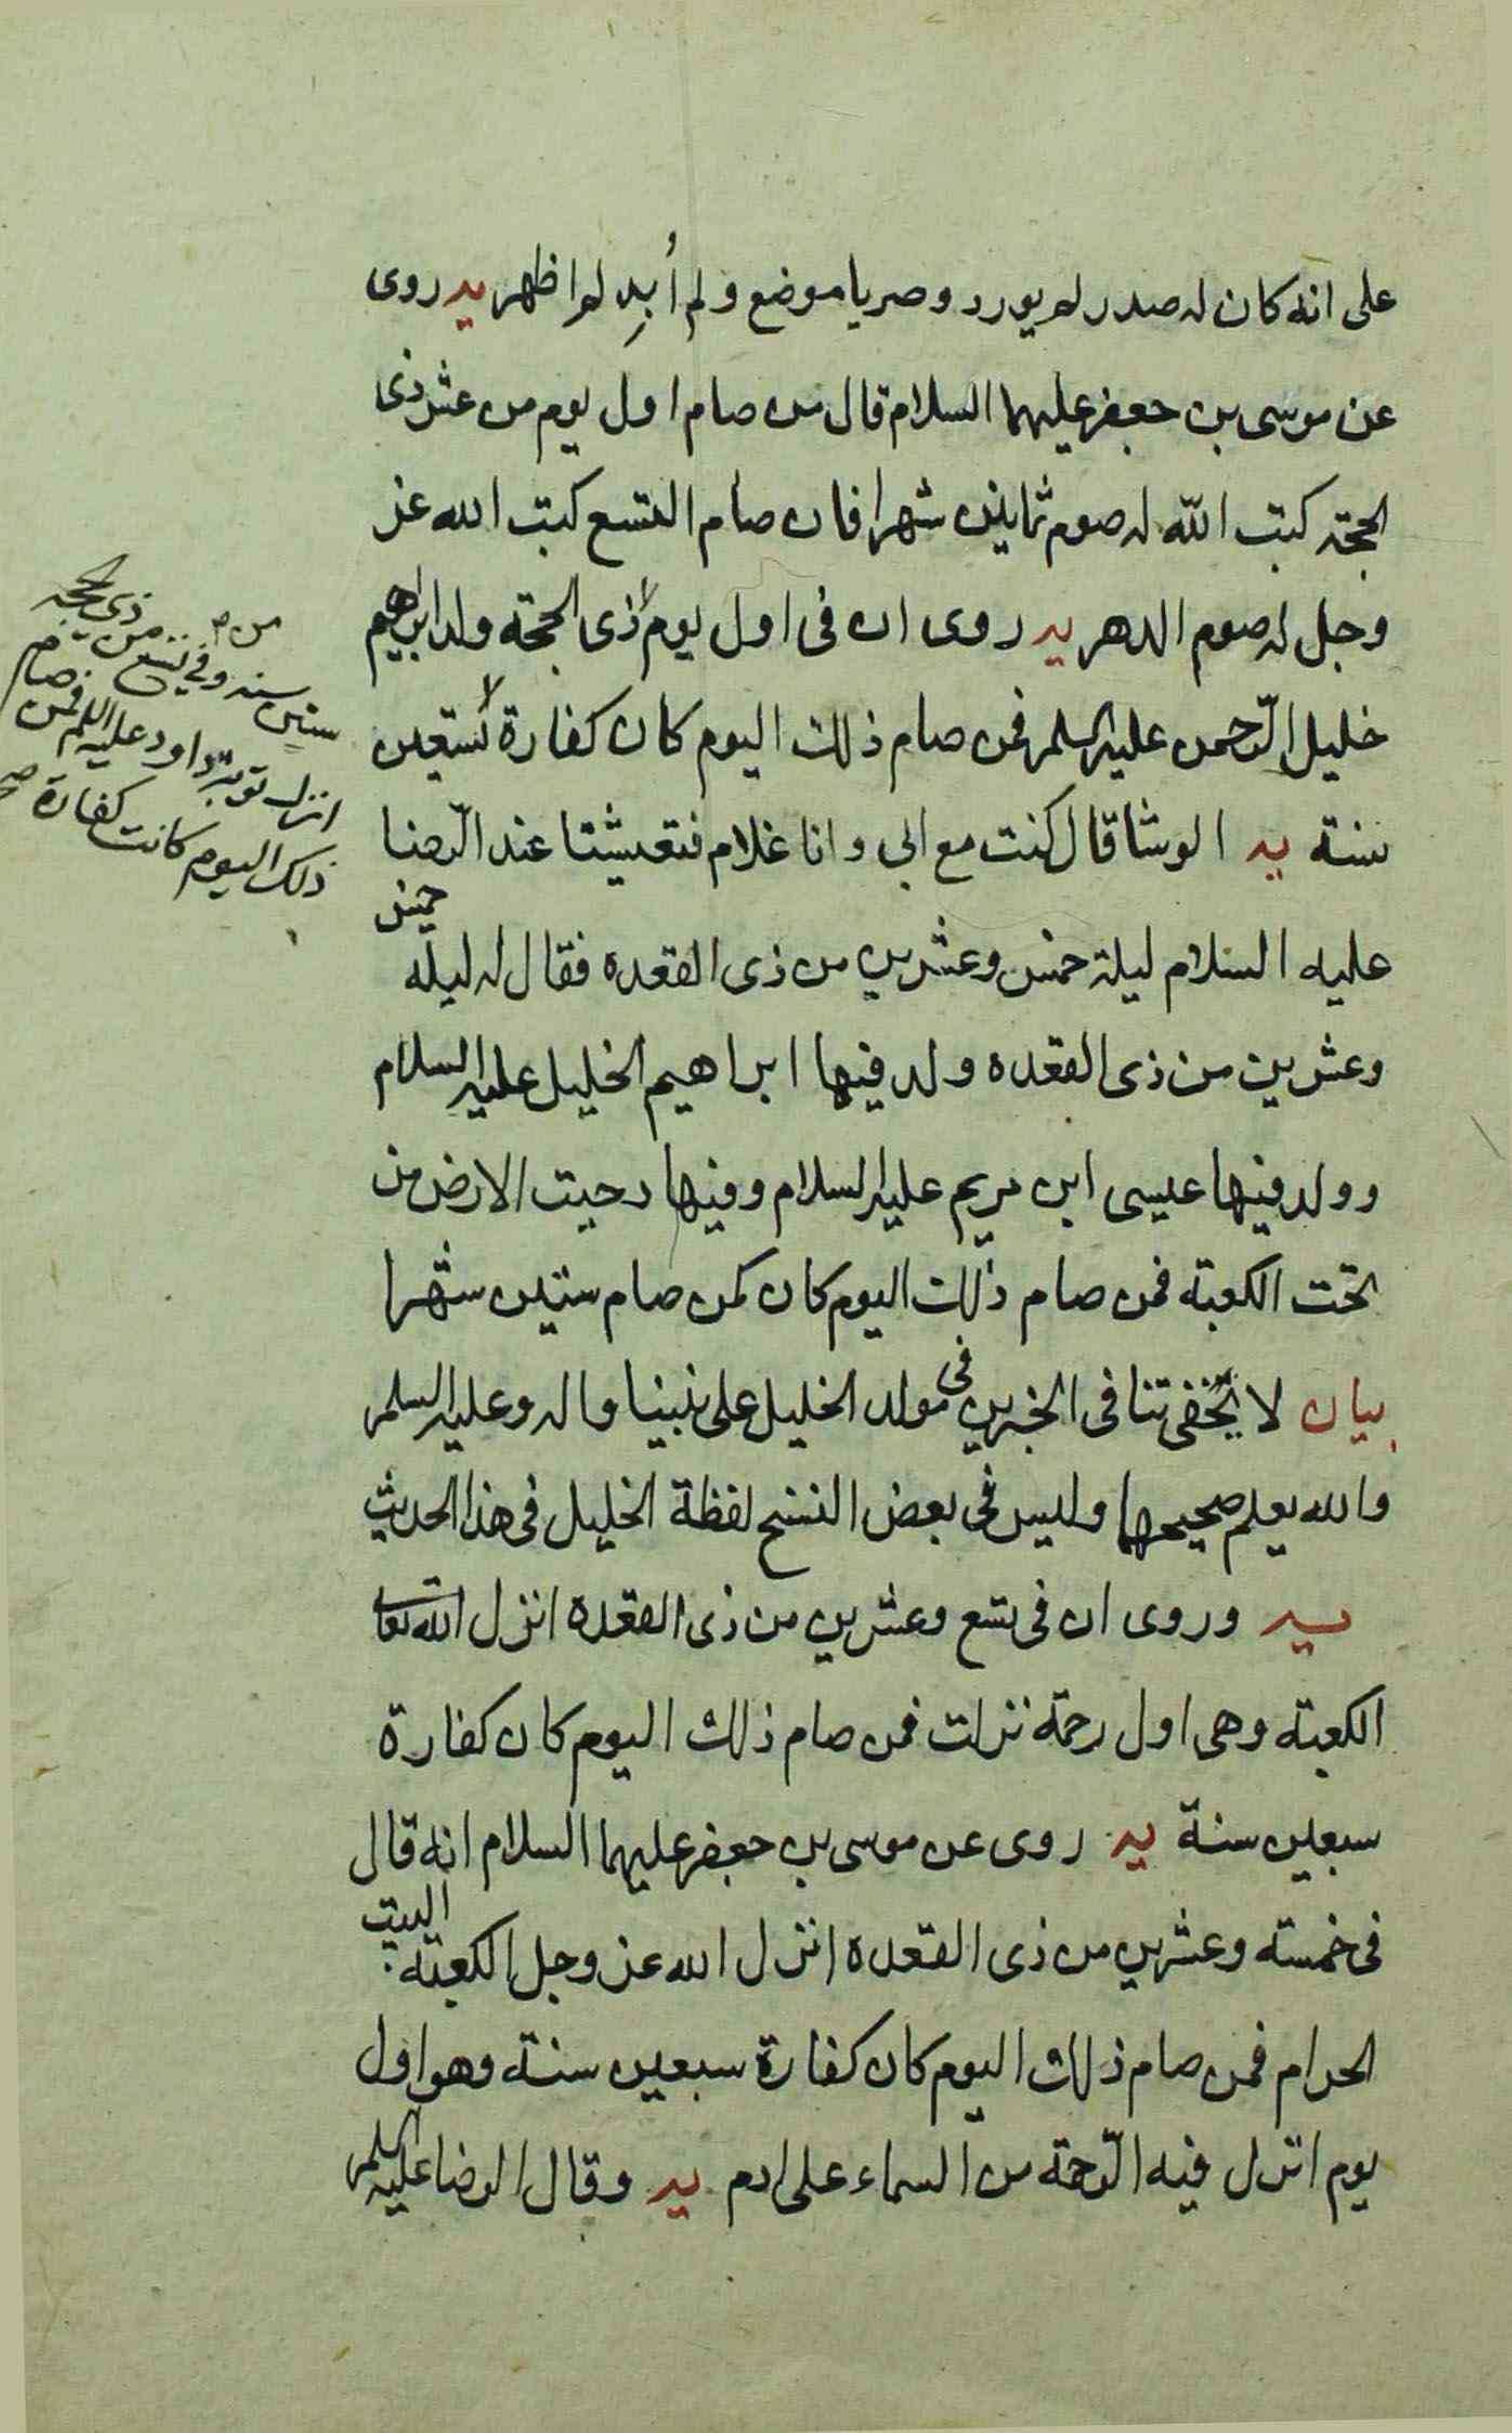 على انه كان له صدر لم يورد وصريا موضع ولم أبدِ لم اظهر يه روى
عن موسى بن جعفر عليهما السلام قال من صام اول يوم من عشر ذى
الحجة كتب الله له صوم ثمانين شهرا فان صام التسع كتب الله عز
وجل له صوم الدهر يه روى ان فى اول يوم ذى الحجة ولد ابراهيم
خليل الرّحمن عليه السلم فمن صام ذلك اليوم كان كفارة تسعين
سنة يه الوشا قال كنت مع ابى وانا غلام فتعيشنا عند الرّضا
عليه السلام ليلة خمس وعشرين من ذى القعده فقال له ليلة خمس
وعشرين من ذى القعده ولد فيها ابراهيم الخليل عليه السلام
وولد فيها عيسى ابن مريم عليه السلام وفيها دحيت الارض من
تحت الكعبة فمن صام ذلك اليوم كان كمن صام ستين شهرا
بيان لا يخفى تنافى الخبرين فى مولد الخليل على نبينا واله وعليه السلم
والله يعلم صحيحهما وليس فى بعض النسخ لفظة الخليل فى هذا الحديث
يه وروى ان فى تسع وعشرين من ذى القعده انزل الله تعا
الكعبة وهى اول رحمة نزلت فمن صام ذلك اليوم كان كفارة
سبعين سنة يه روى عن موسى بن جعفر عليهما السلام انه قال
فى خمسة وعشرين من ذى القعده انزل الله عز وجل الكعبة البيت
الحرام فمن صام ذلك اليوم كان كفارة سبعين سنة وهو اول
يوم انزل فيه الرّحمة من السماء على ادم يه وقال الرضا عليه السلم
من
ستين سنه وفي تسع من ذى الحجه
انزل توبة داود عليه السلم فمن صام
ذلك اليوم كانت كفارة صح